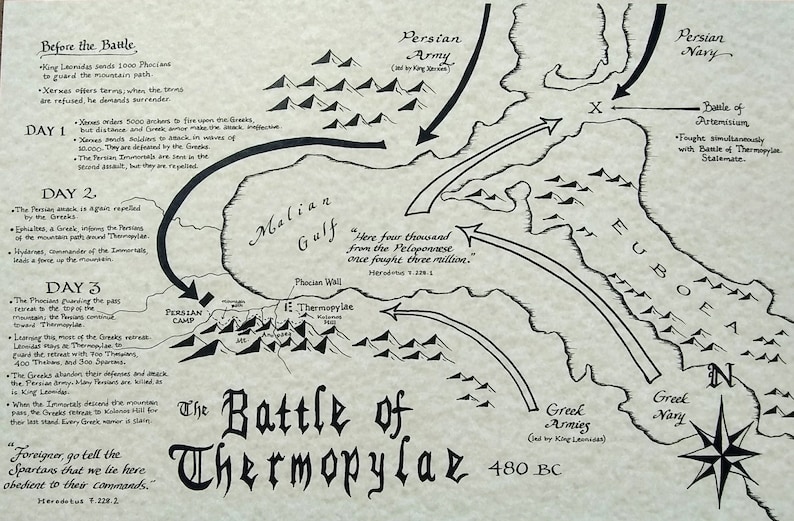 Before the Battle
• King Leonidas sends 1000 Phocians
to guard the mountain path.
• Xerxes offers terms; when the terms
are refused, he demands surrender.
DAY 1
• Xerxes orders 5000 archers to fire upon the Greeks,
but distance and Greek armor make the attack ineffective.
• Xerxes sends soldiers to attack in waves of
10,000. They are defeated by the Greeks.
• The Persian Immortals are sent in the
second assault, but they are repelled.
DAY 2
• The Persian attack is again repelled
by the Greeks.
• Ephialtes, a Greek, informs the Persians
of the mountain path around Thermopylae.
• Hydarnes, commander of the Immortals,
leads a force up the mountain.
DAY 3
• The Phocians guarding the pass
retreat to the top of the
mountain; the Persians continue
toward Thermopylae.
• Learning this, most of the Greeks retreat.
Leonidas stays at Thermopylae to
guard the retreat with 700 Thespians,
400 Thebans, and 300 Spartans.
• The Greeks abandon their defenses and attack
the Persian Army. Many Persians are killed, as
is King Leonidas.
• When the Immortals descend the mountain
pass, the Greeks retreat to Kolonos Hill for
their last stand. Every Greek warrior is slain.
"Foreigner, go tell the
Spartans that we lie here
obedient to their commands."
Herodotus 7.228.2
Persian
Army
(led by King Xerxes)
Persian
Navy
X
Battle of
Artemisium
• Fought simultaneously
with Battle of Thermopylae.
Stalemate.
Malian
Gulf
"Here four thousand
from the Peloponnese
once fought three million."
Herodotus 7.228.1
EUBOEA
Phocian Wall
PERSIAN
CAMP
mountain
path
Thermopylae
Kolonos
Hill
Mt.
Greek
Armies
(led by King Leonidas)
Greek
Navy
N
The Battle of
Thermopylae
480 BC